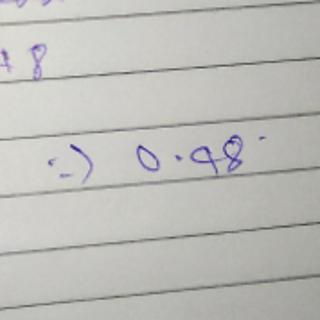 8
=) 0.48